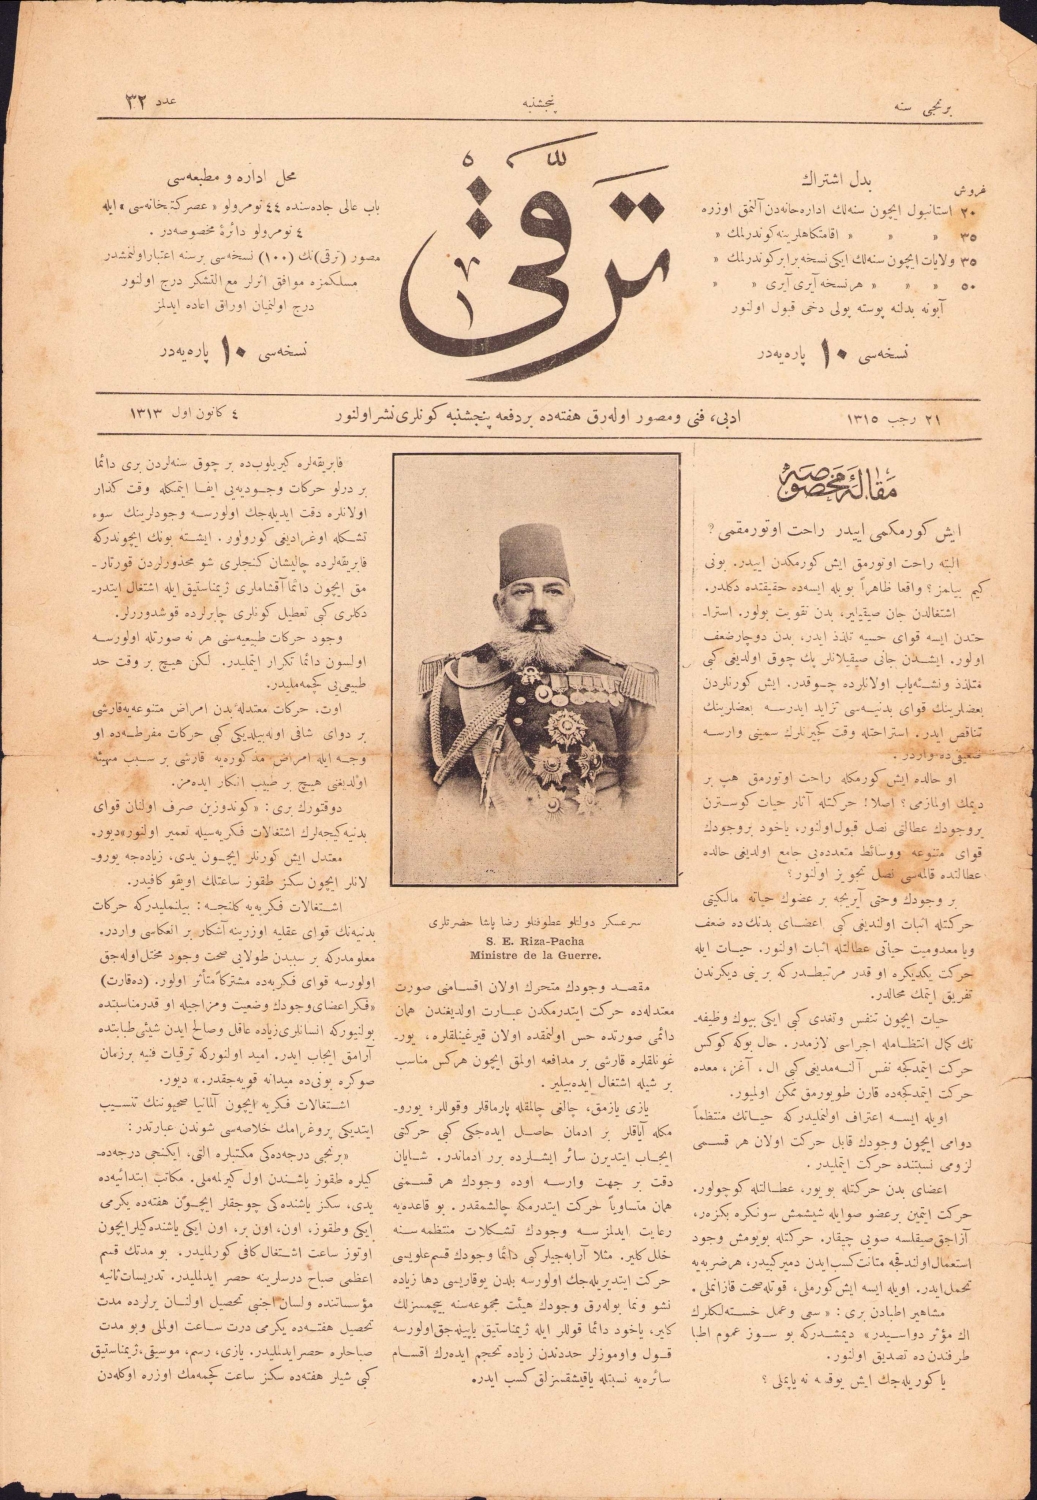 برنجی سنه
پنجشنبه
عدد ۳۲
بدل اشتراك
غروش
۲۰ استانبول ایچون سنه‌لك اداره‌خانه‌دن آلنمق اوزره
۳۵ » » » اقامتكاهلرینه كوندرلمك »
۳۵ ولایات ایچون سنه‌لك ایكی نسخه برابر كوندرلمك »
۵۰ » » » هر نسخه آیری آیری » »
آبونه بدلنه پوسته پولی دخی قبول اولنور
نسخه‌سی ۱۰ پاره‌یه‌در
ترقی
محل اداره و مطبعه‌سی
باب عالی جاده‌سنده ٤٤ نومرولو « عصر كتبخانه‌سی » ایله
٤ نومرولو دائرۀ مخصوصه‌در .
مصور (ترقی)نك (۱۰۰) نسخه‌سی برسنه اعتبار اولنمشدر
مسلكمزه موافق اثرلر مع التشكر درج اولنور
درج اولنمیان اوراق اعاده ایدلمز
نسخه‌سی ۱۰ پاره‌یه‌در
۲۱ رجب ۱۳۱۵
ادبی، فنی و مصور اوله‌رق هفته‌ده بر دفعه پنجشنبه كونلری نشر اولنور
٤ كانون اول ۱۳۱۳
مقالۀ مخصوصه
ایش كورمكمی اییدر راحت اوتورمقمی ؟
البته راحت اوتورمق ایش كورمكدن اییدر. بونی
كیم بیلمز؟ واقعا ظاهراً بویله ایسه‌ده حقیقتده دكلدر.
اشتغالدن جان صیقیلیر، بدن تقویت بولور. استرا-
حتدن ایسه قوای حسیه تلذذ ایدر، بدن دوچار ضعف
اولور. ایشدن جانی صیقیلانلر پك چوق اولدیغی كبی
متلذذ ونشئه‌یاب اولانلرده چوقدر. ایش كورنلردن
بعضلرینك قوای بدنیه‌سی تزاید ایدرسه بعضلرینك
تناقص ایدر. استراحتله وقت كچیرنلرك سمینی وارسه
ضعیفی‌ده واردر.
او حالده ایش كورمكله راحت اوتورمق هپ بر
دیمك اولمازمی؟ اصلا! حركتله آثار حیات كوسترن
بر وجودك عطالتی نصل قبول اولنور، یاخود بر وجودك
قوای متنوعه ووسائط متعدده‌یی جامع اولدیغی حالده
عطالتده قالمه‌سی نصل تجویز اولنور؟
بر وجودك وحتی آیریجه بر عضوك حیاته مالكیتی
حركتله اثبات اولندیغی كبی اعضای بدنك‌ده ضعف
ویا معدومیت حیاتی عطالتله اثبات اولنور. حیات ایله
حركت یكدیكره او قدر مرتبطدر كه بر ینی دیكرندن
تفریق ایتمك محالدر.
حیات ایچون تنفس وتغدی كبی ایكی بیوك وظیفه-
نك كمال انتظامله اجراسی لازمدر. حال بوكه كوكس
حركت ایتمدكجه نفس آلنه‌مدیغی كبی ال، آغز، معده
حركت ایتمدكجه‌ده قارن طویورمق ممكن اولمیور.
اویله ایسه اعتراف اولنملیدر كه حیاتك منتظماً
دوامی ایچون وجودك قابل حركت اولان هر قسمی
لزومی نسبتنده حركت ایتملیدر.
اعضای بدن حركتله بویور، عطالتله كوچولور.
حركت ایتمین بر عضو صوایله شیشمش سونكره بكزر،
آزاجق صیقلسه صویی چیقار. حركتله بویومش وجود
استعمال اولندقجه متانت كسب ایدن دمیر كبیدر، هر ضربه‌یه
تحمل ایدر. اویله ایسه ایش كورملی، قوتله صحت قازانملی .
مشاهیر اطبادن بری : « سعی وعمل خسته‌لكلرك
اك مؤثر دواسیدر » دیمشدر كه بو سوز عموم اطبا
طرفندن ده تصدیق اولنور.
یا كوریله‌جك ایش یوقسه نه یاپملی ؟
سرعسكر دولتلو عطوفتلو رضا پاشا حضرتلری
S. E. Riza-Pacha
Ministre de la Guerre.
مقصد وجودك متحرك اولان اقسامنی صورت
معتدله‌ده حركت ایتدرمكدن عبارت اولدیغندن همان
دائمی صورتده حس اولنمقده اولان قیرغینلقلره، یور-
غونلقلره قارشی بر مدافعه اولمق ایچون هركس مناسب
بر شیله اشتغال ایده‌بیلیر .
یازی یازمق، چالغی چالمقله پارماقلر وقوللر؛ یورو-
مكله آیاقلر بر ادمان حاصل ایده‌جكی كبی حركتی
ایجاب ایتدیرن سائر ایشلرده برر ادماندر. شایان
دقت بر جهت وارسه اوده وجودك هر قسمنی
همان متساویاً حركت ایتدرمكه چالشمقدر. بو قاعده‌یه
رعایت ایدلمزسه وجودك تشكلات منتظمه‌سنه
خلل كلیر. مثلا آرابه‌جیلر كبی دائما وجودك قسم علویسی
حركت ایتدیریله‌جك اولورسه بلدن یوقاریسی دها زیاده
نشو ونما بوله‌رق وجودك هیئت مجموعه‌سنه بیچمسزلك
كلیر، یاخود دائما قوللر ایله ژیمناستیق یاپیله‌جق اولورسه
قول واوموزلر حددندن زیاده تحجم ایده‌رك اقسام
سائره‌یه نسبتله یاقیشقسزلق كسب ایدر.
فابریقه‌لره كیریلوب‌ده بر چوق سنه‌لردن بری دائما
بر درلو حركات وجودیه‌یی ایفا ایتمكله وقت كذار
اولانلره دقت ایدیله‌جك اولورسه وجودلرینك سوء
تشكله اوغرادیغی كورولور. ایشته بونك ایچوندر كه
فابریقه‌لرده چالیشان كنجلری شو محذوردن قورتار-
مق ایچون دائما آقشاملری ژیمناستیق ایله اشتغال ایتدر-
دكلری كبی تعطیل كونلری چایرلرده قوشدوررلر.
وجود حركات طبیعیه‌سنی هر نه صورتله اولورسه
اولسون دائما تكرار ایتملیدر. لكن هیچ بر وقت حد
طبیعی‌یی كچمه‌ملیدر.
اوت، حركات معتدلۀ بدن امراض متنوعه‌یه قارشی
بر دوای شافی اوله‌بیلدیكی كبی حركات مفرطه‌ده او
وجه ایله امراض مذكوره‌یه قارشی بر سبب مهیئه
اولدیغنی هیچ بر طبیب انكار ایده‌مز.
دوقتورك بری: «كوندوزین صرف اولنان قوای
بدنیه كیجه‌لرك اشتغالات فكریه‌سیله تعمیر اولنور» دیور.
معتدل ایش كورنلر ایچون یدی، زیاده‌جه یورو-
لانلر ایچون سكز طقوز ساعتلك اویقو كافیدر.
اشتغالات فكریه‌یه كلنجه : بیلنملیدر كه حركات
بدنیه‌نك قوای عقلیه اوزرینه آشكار بر انعكاسی واردر.
معلومدر كه بر سببدن طولایی صحت وجود مختل اوله‌جق
اولورسه قوای فكریه‌ده مشتركاً متأثر اولور. (ده‌قارت)
«فكر اعضای وجودك وضعیت ومزاجیله او قدر مناسبتده
بولنیور كه انسانلری زیاده عاقل وصالح ایدن شیئی طبابتده
آرامق ایجاب ایدر. امید اولنور كه ترقیات فنیه بر زمان
صوكره بونی‌ده میدانه قویه‌جقدر.» دیور.
اشتغالات فكریه ایچون آلمانیا صحیوننك تنسیب
ایتدیكی پروغرامك خلاصه‌سی شوندن عبارتدر :
«برنجی درجه‌ده‌كی مكتبلره التی، ایكنجی درجه‌ده-
كیلره طقوز یاشندن اول كیرلمه‌ملی. مكاتب ابتدائیه‌ده
یدی، سكز یاشنده‌كی چوجقلر ایچون هفته‌ده یكرمی
ایكی وطقوز، اون، اون بر، اون ایكی یاشنده‌كیلر ایچون
اوتوز ساعت اشتغال كافی كورلملیدر. بو مدتك قسم
اعظمی صباح درسلرینه حصر ایدلملیدر. تدریسات ثانیه
مؤسساتنده ولسان اجنبی تحصیل اولنان یرلرده مدت
تحصیل هفته‌ده یكرمی درت ساعت اولملی وبو مدت
صباحلره حصر ایدلملیدر. یازی، رسم، موسیقی، ژیمناستیق
كبی شیلر هفته‌ده سكز ساعت كچمه‌مك اوزره اوكله‌دن